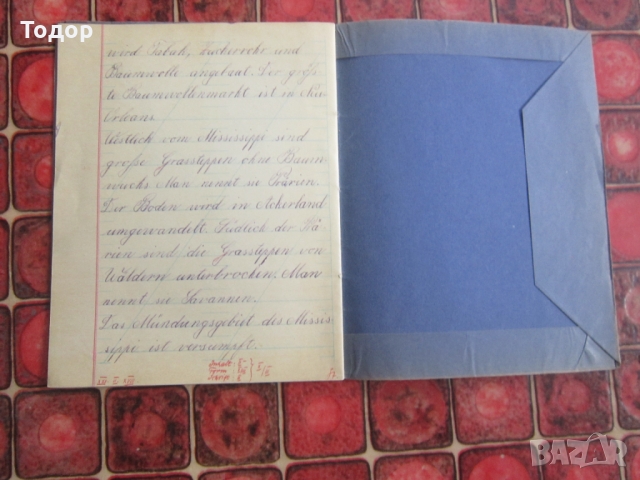 Todor
wird Tabak, Zuckerrohr und
Baumwolle angebaut. Der größ-
te Baumwollenmarkt ist in Neu
Orleans.
Westlich vom Mississippi sind
große Grassteppen ohne Baum-
wuchs. Man nennt sie Prärien.
Der Boden wird in Ackerland
umgewandelt. Südlich der Prä-
rien sind die Grassteppen von
Wäldern unterbrochen. Man
nennt sie Savannen.
Das Mündungsgebiet des Missis-
sippi ist versumpft.
BAZAR